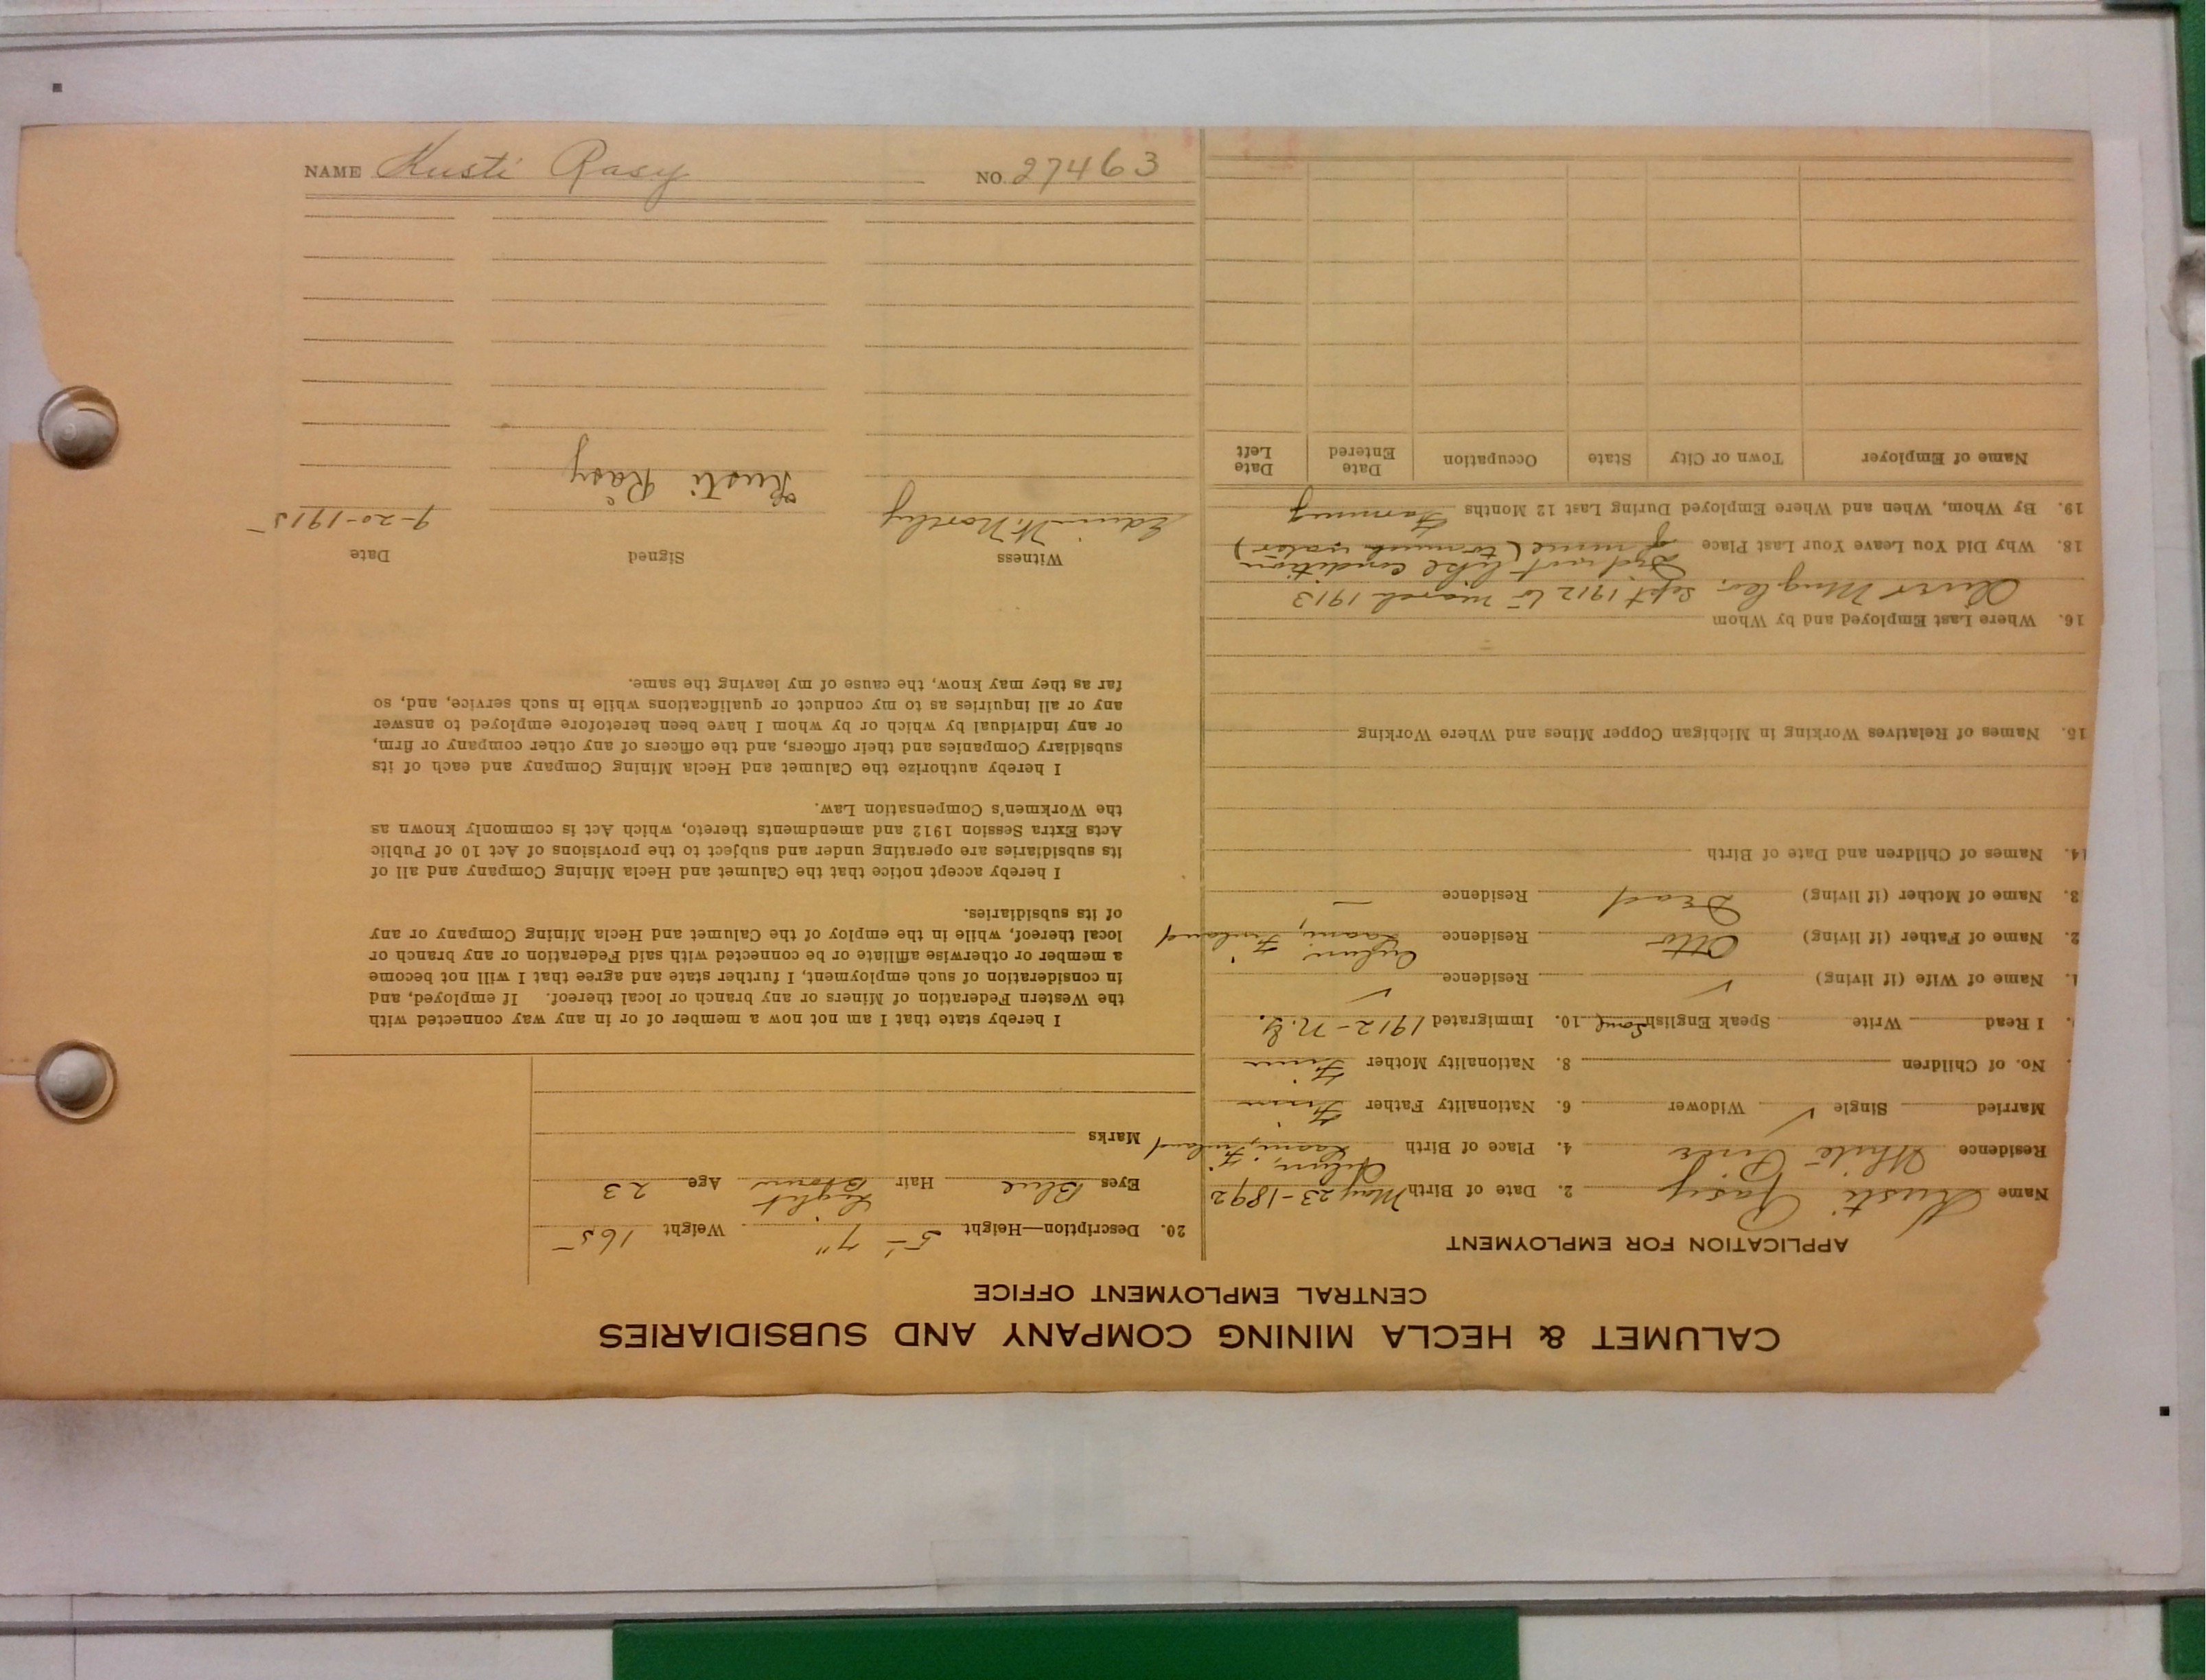 NAME Kusti Rasy NO. 27463
CALUMET & HECLA MINING COMPANY AND SUBSIDIARIES
CENTRAL EMPLOYMENT OFFICE
APPLICATION FOR EMPLOYMENT
Name Kusti Rasy 2. Date of Birth May 23-1892
Residence White Pine 4. Place of Birth Finland
Married Single ✓ Widower 6. Nationality Father Finn
No. of Children 8. Nationality Mother Finn
I Read Write Speak English Some 10. Immigrated 1912 - N.Y.
Name of Wife (if living) ✓ Residence ✓
2. Name of Father (if living) Otto Residence Finland
3. Name of Mother (if living) Dead Residence —
14. Names of Children and Date of Birth
15. Names of Relatives Working in Michigan Copper Mines and Where Working
16. Where Last Employed and by Whom
Sept 1912 to March 1913
Did not like condition
18. Why Did You Leave Your Last Place of mine (to much water)
19. By Whom, When and Where Employed During Last 12 Months Farming
Name of Employer Town or City State Occupation Date Entered Date Left
20. Description—Height 5' 7" Weight 165
Eyes Blue Hair Light Brown Age 23
Marks
I hereby state that I am not now a member of or in any way connected with
the Western Federation of Miners or any branch or local thereof. If employed, and
in consideration of such employment, I further state and agree that I will not become
a member or otherwise affiliate or be connected with said Federation or any branch or
local thereof, while in the employ of the Calumet and Hecla Mining Company or any
of its subsidiaries.
I hereby accept notice that the Calumet and Hecla Mining Company and all of
its subsidiaries are operating under and subject to the provisions of Act 10 of Public
Acts Extra Session 1912 and amendments thereto, which Act is commonly known as
the Workmen's Compensation Law.
I hereby authorize the Calumet and Hecla Mining Company and each of its
subsidiary Companies and their officers, and the officers of any other company or firm,
or any individual by which or by whom I have been heretofore employed to answer
any or all inquiries as to my conduct or qualifications while in such service, and, so
far as they may know, the cause of my leaving the same.
Witness Signed Date
Edwin W. 9-20-1915
Kusti Råsy